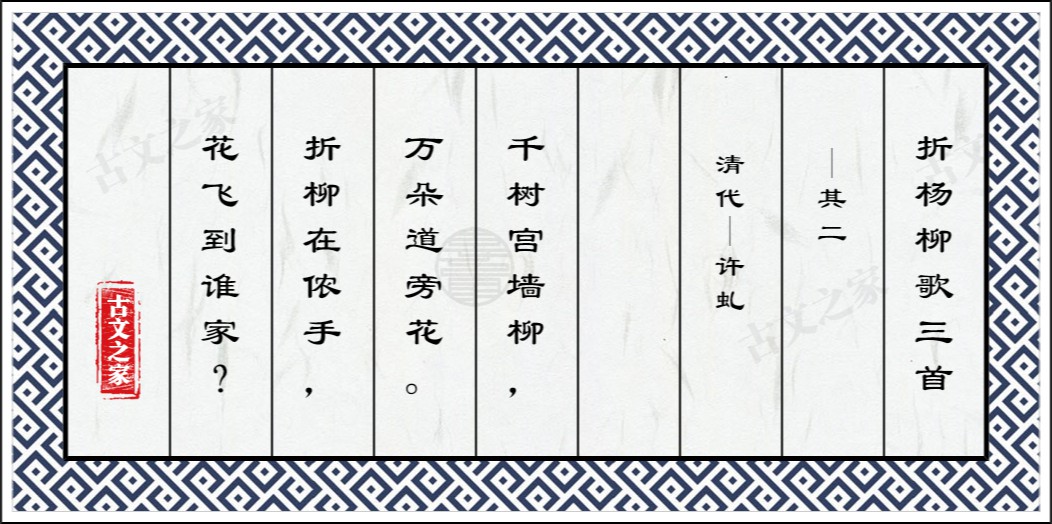 折杨柳歌三首
—其二
清代—许虬
千树宫墙柳，
万朵道旁花。
折柳在侬手，
花飞到谁家？
古文之家
古文之家
古文之家